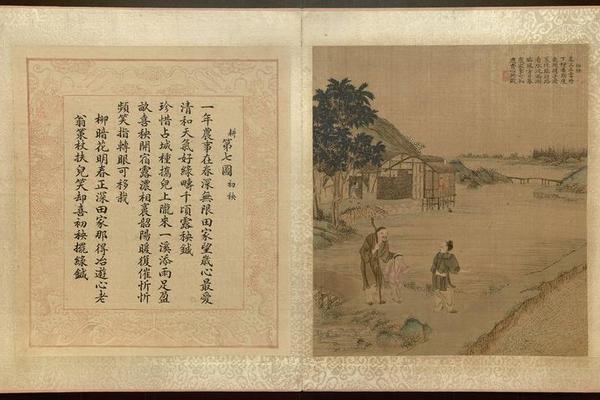 耕 第七圖 初秧
一年農事在春深無限田家望歲心最愛
清和天氣好綠疇千頃露秧鍼
珍惜占城種攜兒上隴來一溪添雨足盈
畝喜秧開宿露濃相裛韶陽暖復催忻忻
頻笑指轉眼可移栽
柳暗花明春正深田家那得冶遊心老
翁策杖扶兒笑却喜初秧擢綠鍼
初秧